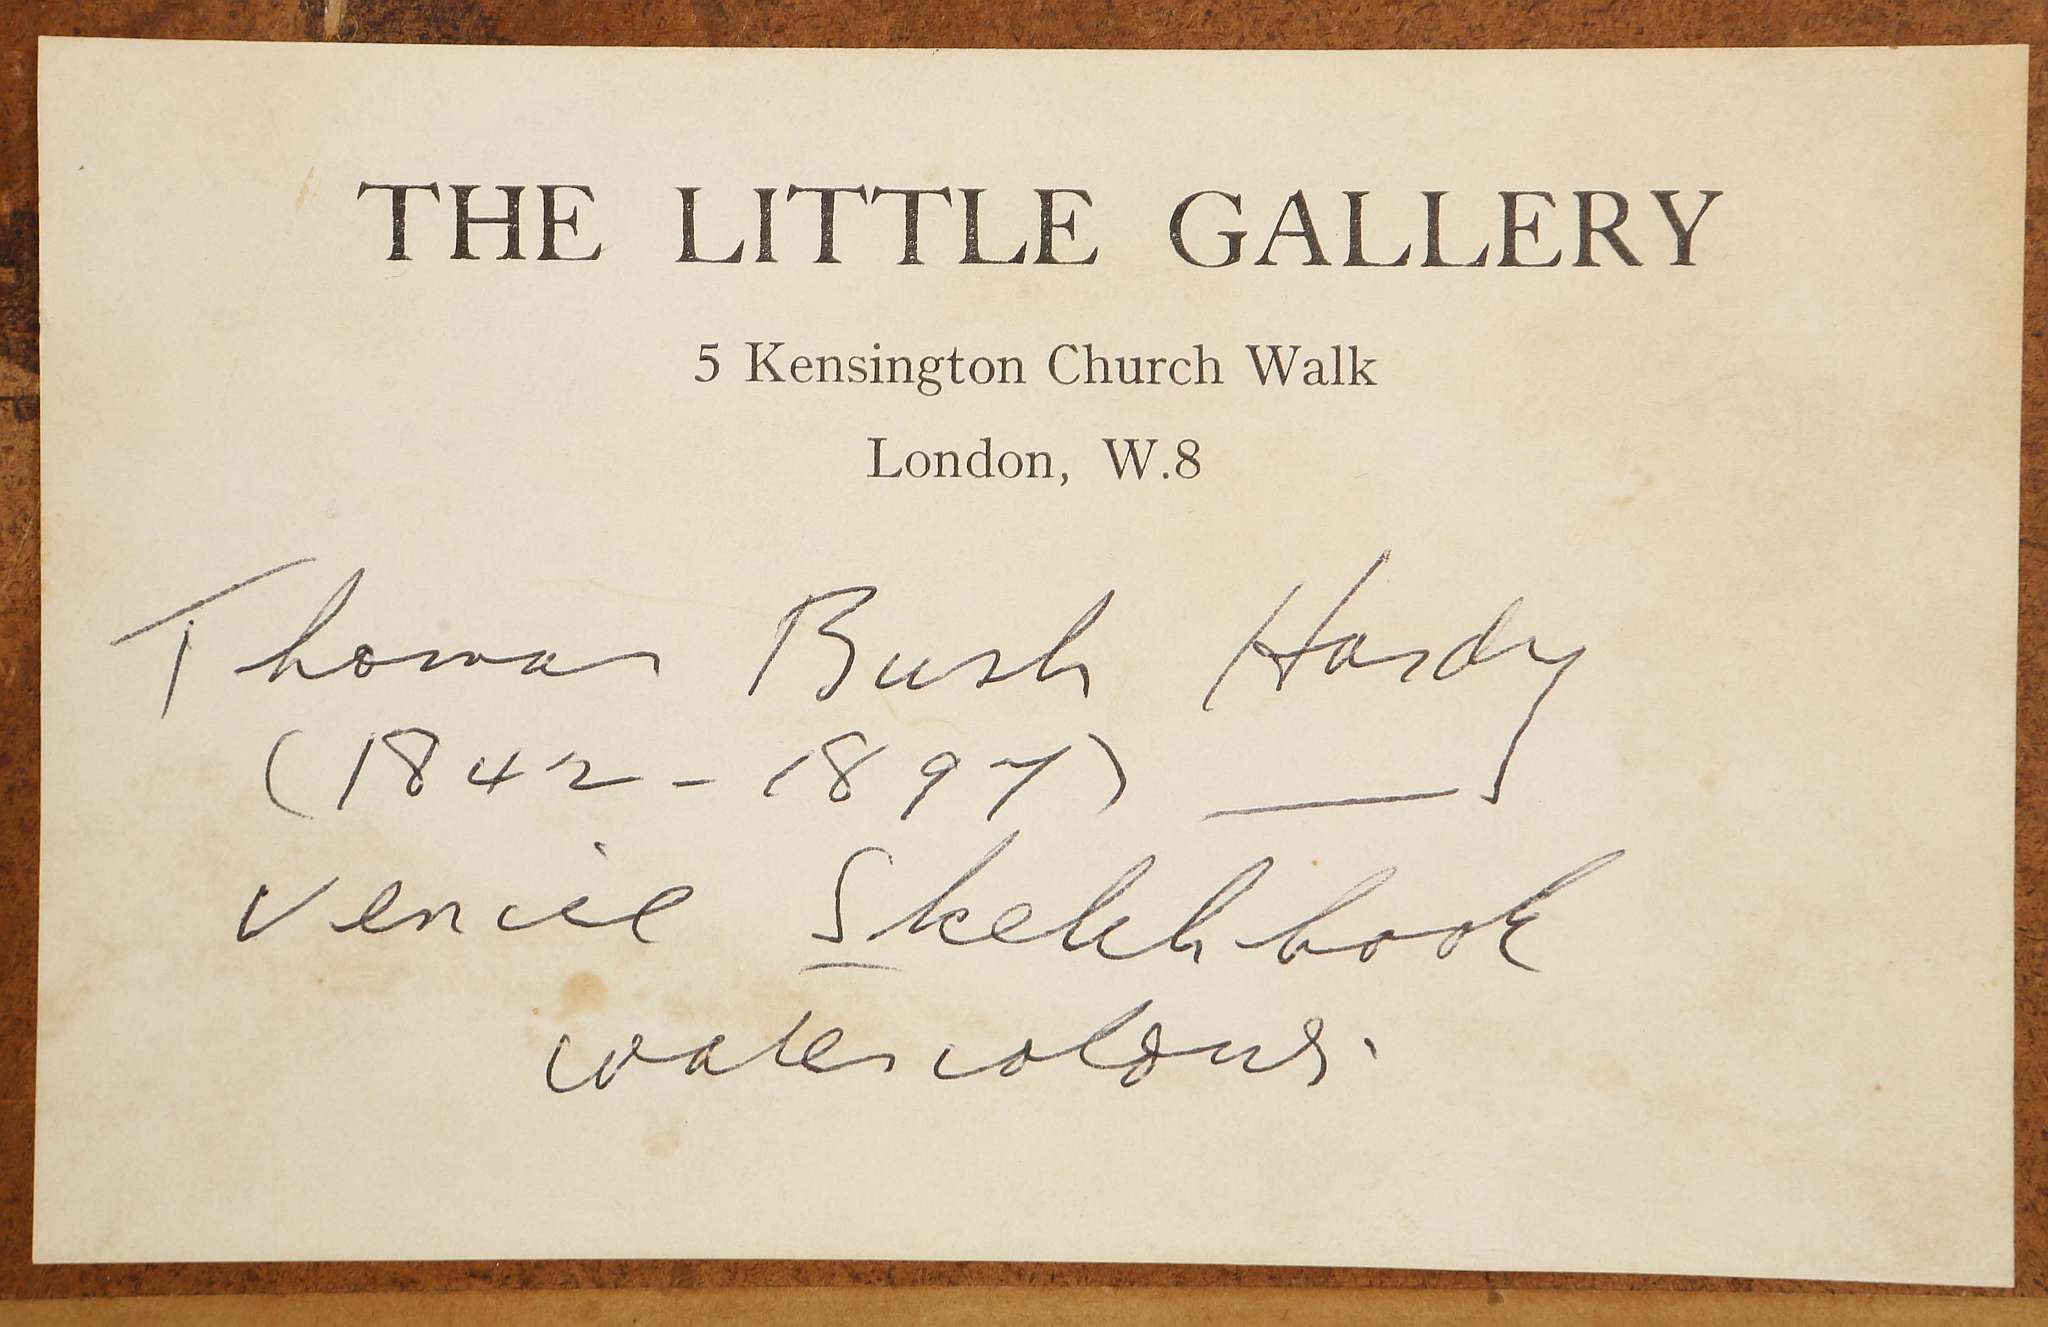 THE LITTLE GALLERY
5 Kensington Church Walk
London, W.8
Thomas Bush Hardy
(1842 - 1897) —
Venice Sketchbook
watercolour.